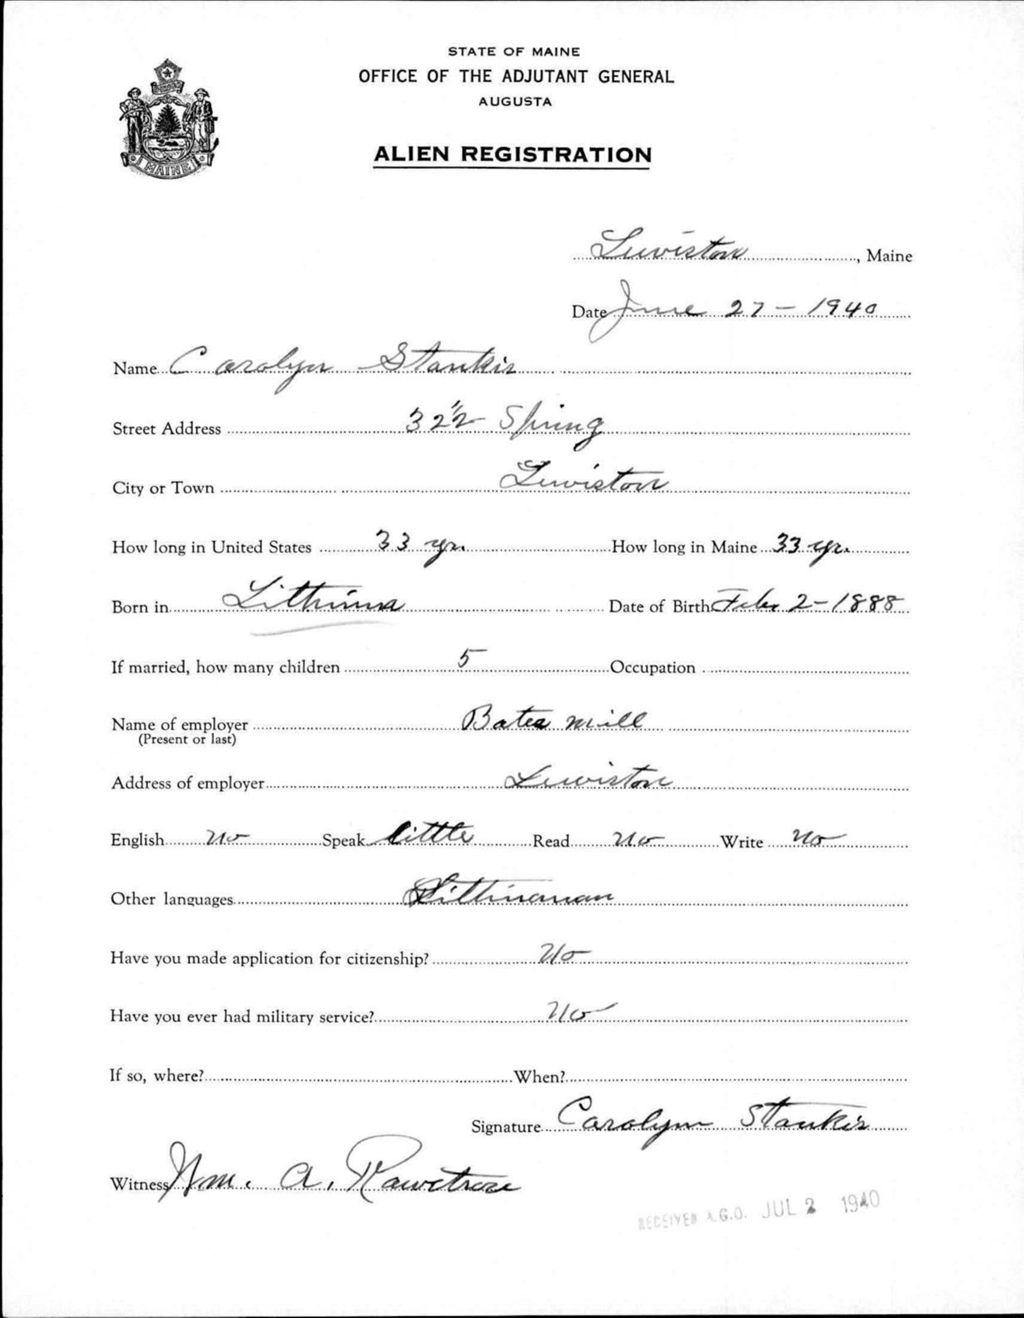 STATE OF MAINE
OFFICE OF THE ADJUTANT GENERAL
AUGUSTA
ALIEN REGISTRATION
MAINE
Lewiston, Maine
Date June 27 - 1940
Name Carolyn Stankis
Street Address 32 1/2 Spring
City or Town Lewiston
How long in United States 33 yr. How long in Maine 33 yr.
Born in Lithuina Date of Birth Feb 2 - 1888
If married, how many children 5 Occupation
Name of employer Bates mill
(Present or last)
Address of employer Lewiston
English no Speak little Read no Write no
Other languages
Have you made application for citizenship? No
Have you ever had military service? No
If so, where? When?
Signature Carolyn Stankis
Witness Wm. A.
RECEIVED A.G.O. JUL 2 1940